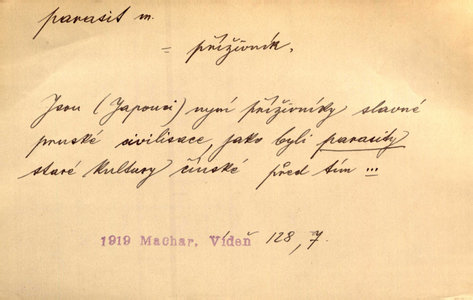 parasit m.
= příživník.
Jsou (Japonci) nyní příživníky slavné
pruské civilisace, jako byli parasity
staré kultury čínské před tím ...
1919 Machar, Vídeň 128,7.